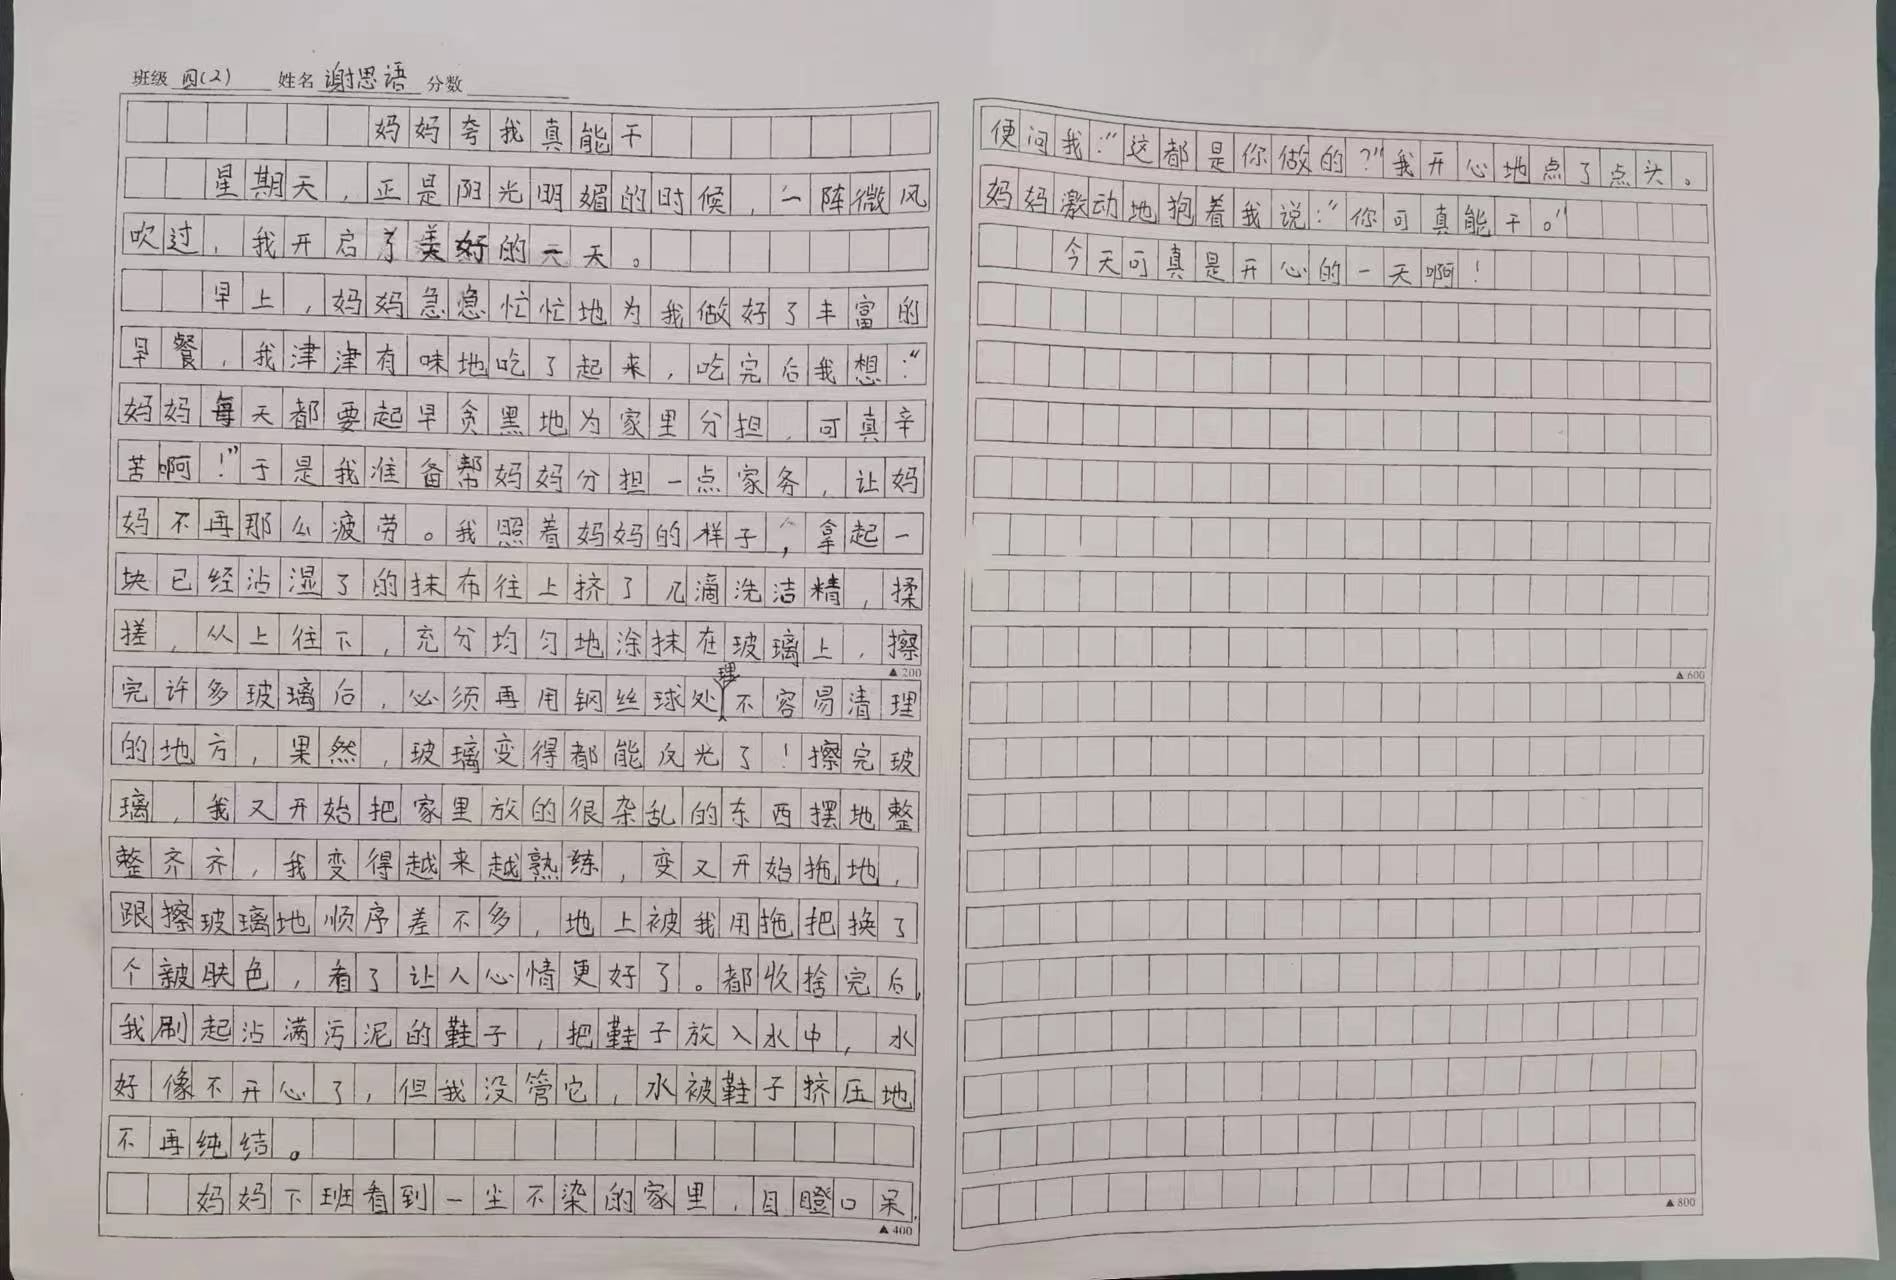 班级 四(2) 姓名 谢思语 分数
妈妈夸我真能干
星期天，正是阳光明媚的时候，一阵微风
吹过，我开启了美好的一天。
早上，妈妈急急忙忙地为我做好了丰富的
早餐，我津津有味地吃了起来，吃完后我想：“
妈妈每天都要起早贪黑地为家里分担，可真辛
苦啊！”于是我准备帮妈妈分担一点家务，让妈
妈不再那么疲劳。我照着妈妈的样子，拿起一
块已经沾湿了的抹布往上挤了几滴洗洁精，揉
搓，从上往下，充分均匀地涂抹在玻璃上，擦
▲200
完许多玻璃后，必须再用钢丝球处理不容易清理
的地方，果然，玻璃变得都能反光了！擦完玻
璃，我又开始把家里放的很杂乱的东西摆地整
整齐齐，我变得越来越熟练，变又开始拖地，
跟擦玻璃地顺序差不多，地上被我用拖把换了
个新肤色，看了让人心情更好了。都收拾完后，
我刷起沾满污泥的鞋子，把鞋子放入水中，水
好像不开心了，但我没管它，水被鞋子挤压地
不再纯结。
妈妈下班看到一尘不染的家里，目瞪口呆，
▲400
便问我：“这都是你做的？”我开心地点了点头。
妈妈激动地抱着我说：“你可真能干。”
今天可真是开心的一天啊！
▲600
▲800